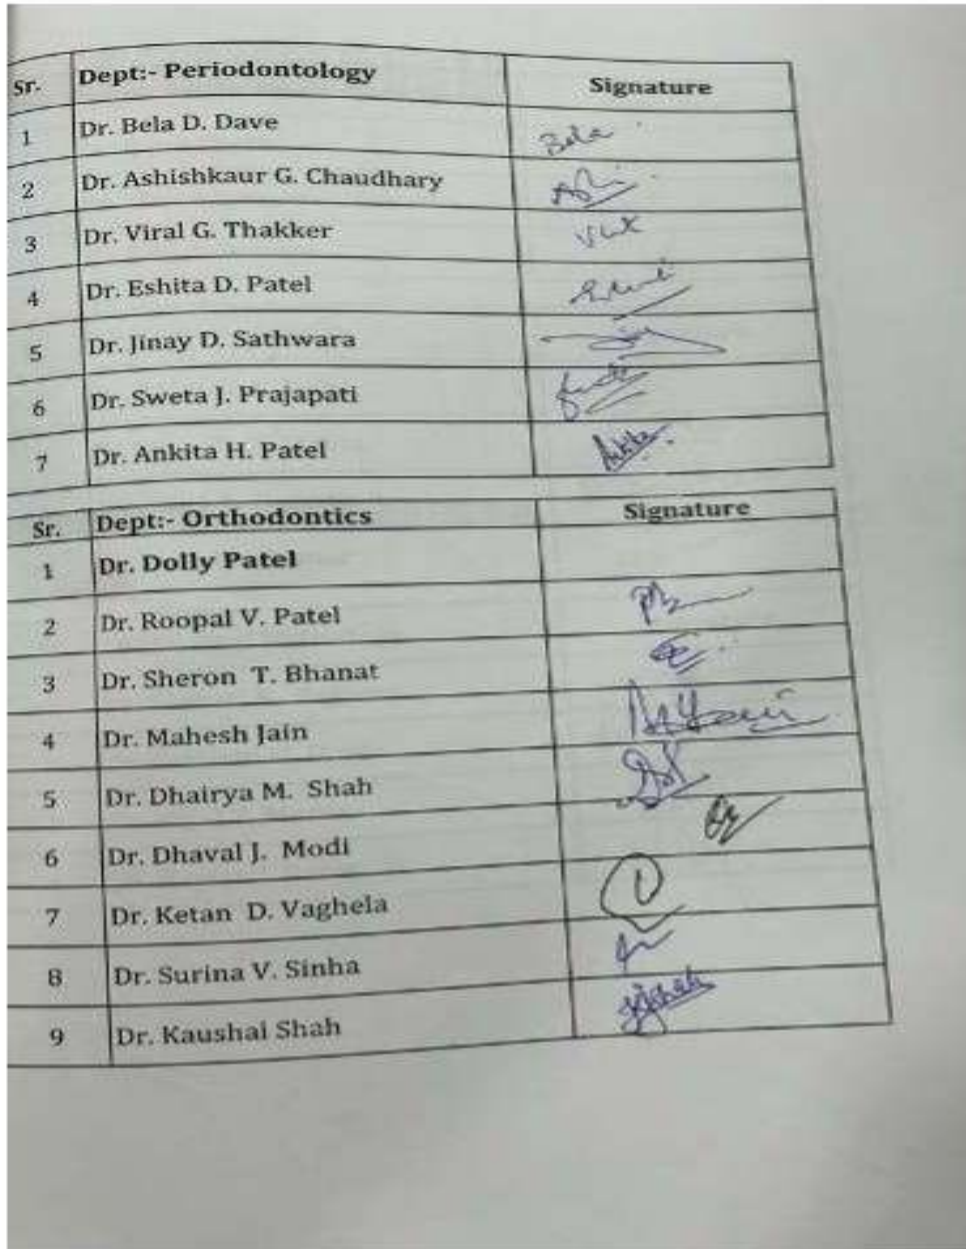 Sr. Dept:- Periodontology Signature
1 Dr. Bela D. Dave Bela
2 Dr. Ashishkaur G. Chaudhary
3 Dr. Viral G. Thakker
4 Dr. Eshita D. Patel
5 Dr. Jinay D. Sathwara
6 Dr. Sweta J. Prajapati
7 Dr. Ankita H. Patel
Sr. Dept:- Orthodontics Signature
1 Dr. Dolly Patel
2 Dr. Roopal V. Patel
3 Dr. Sheron T. Bhanat
4 Dr. Mahesh Jain
5 Dr. Dhairya M. Shah
6 Dr. Dhaval J. Modi
7 Dr. Ketan D. Vaghela
8 Dr. Surina V. Sinha
9 Dr. Kaushal Shah